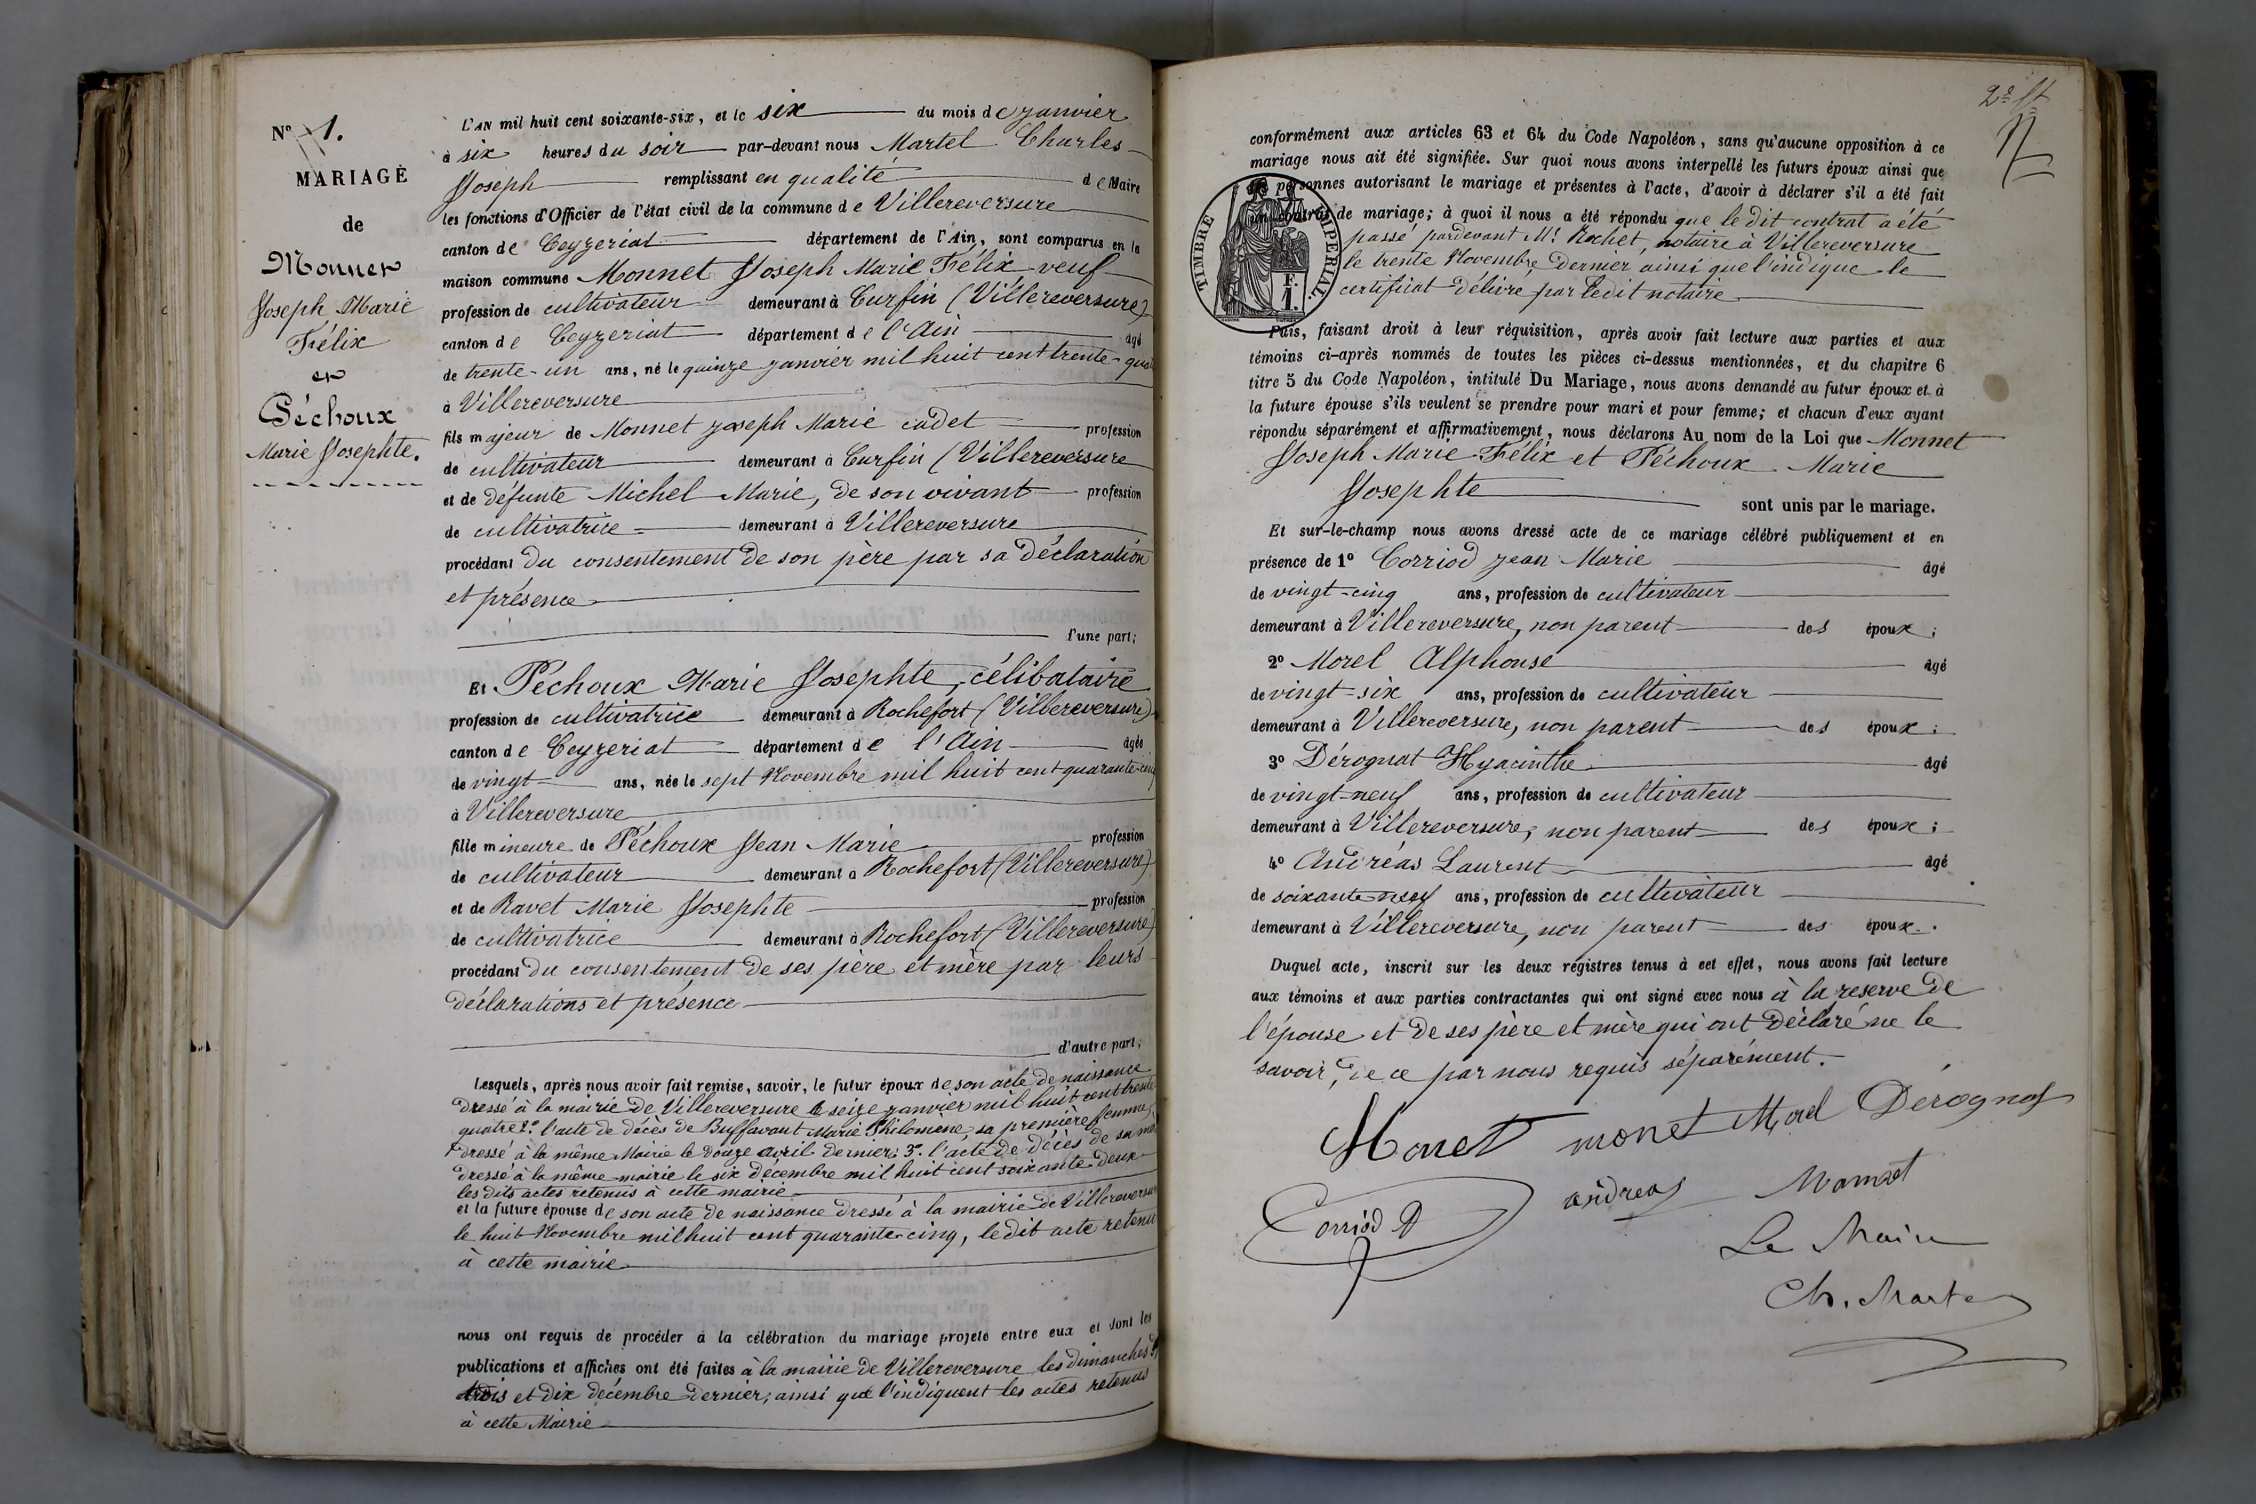 N° 1.
MARIAGE
de
Monnet
Joseph Marie
Félix
et
Péchoux
Marie Josephte.
L'AN mil huit cent soixante-six, et le six du mois de janvier
à six heures du soir par-devant nous Martel Charles
Joseph remplissant en qualité de Maire
les fonctions d'Officier de l'état civil de la commune de Villereversure
canton de Ceyzeriat département de l'Ain, sont comparus en la
maison commune Monnet Joseph Marie Félix veuf
profession de cultivateur demeurant à Curfin (Villereversure)
canton de Ceyzeriat département de l'Ain âgé
de trente-un ans, né le quinze janvier mil huit cent trente-qua
à Villereversure
fils majeur de Monnet joseph Marie cadet profession
de cultivateur demeurant à Curfin (Villereversure
et de défunte Michel Marie, de son vivant profession
de cultivatrice demeurant à Villereversure
procédant du consentement de son père par sa déclaration
et présence
l'une part;
Et Péchoux Marie Josephte, célibataire
profession de cultivatrice demeurant à Rochefort (Villereversure)
canton de Ceyzeriat département de l'Ain âgée
de vingt ans, née le sept Novembre mil huit cent quarante-cinq
à Villereversure
fille mineure de Péchoux Jean Marie profession
de cultivateur demeurant à Rochefort (Villereversure)
et de Ravet Marie Josephte profession
de cultivatrice demeurant à Rochefort (Villereversure)
procédant du consentement de ses père et mère par leurs
déclarations et présence
d'autre part;
Lesquels, après nous avoir fait remise, savoir, le futur époux de son acte de naissance
dressé à la mairie de Villereversure le seize janvier mil huit cent trente
quatre 2° l'acte de décès de Buffavant Marie Philomène, sa première femme,
dressé à la même Mairie le douze avril dernier; 3° l'acte de décès de sa mè
dressé à la même mairie le six décembre mil huit cent soixante-deux
les dits actes retenus à cette mairie
et la future épouse de son acte de naissance dressé à la mairie de Villereversur
le huit Novembre mil huit cent quarante-cinq, le dit acte retenu
à cette mairie
nous ont requis de procéder à la célébration du mariage projeté entre eux et dont les
publications et affiches ont été faites à la mairie de Villereversure les dimanches
trois et dix décembre dernier, ainsi que l'indiquent les actes retenus
à cette Mairie
2e ft
conformément aux articles 63 et 64 du Code Napoléon, sans qu'aucune opposition à ce
mariage nous ait été signifiée. Sur quoi nous avons interpellé les futurs époux ainsi que
les personnes autorisant le mariage et présentes à l'acte, d'avoir à déclarer s'il a été fait
un contrat de mariage; à quoi il nous a été répondu que le dit contrat a été
passé pardevant Me Rochet, notaire à Villereversure
le trente Novembre dernier ainsi que l'indique le
certificat délivré par ledit notaire
TIMBRE IMPERIAL.
F.
1.
Puis, faisant droit à leur réquisition, après avoir fait lecture aux parties et aux
témoins ci-après nommés de toutes les pièces ci-dessus mentionnées, et du chapitre 6
titre 5 du Code Napoléon, intitulé Du Mariage, nous avons demandé au futur époux et à
la future épouse s'ils veulent se prendre pour mari et pour femme; et chacun d'eux ayant
répondu séparément et affirmativement, nous déclarons Au nom de la Loi que Monnet
Joseph Marie Félix et Péchoux Marie
Josephte
sont unis par le mariage.
Et sur-le-champ nous avons dressé acte de ce mariage célébré publiquement et en
présence de 1° Corriod jean Marie âgé
de vingt-cinq ans, profession de cultivateur
demeurant à Villereversure, non parent des époux;
2° Morel Alphonse âgé
de vingt-six ans, profession de cultivateur
demeurant à Villereversure, non parent des époux;
3° Dérognat Hyacinthe âgé
de vingt-neuf ans, profession de cultivateur
demeurant à Villereversure, non parent des époux;
4° Andréas Laurent âgé
de soixante neuf ans, profession de cultivateur
demeurant à Villereversure, non parent des époux.
Duquel acte, inscrit sur les deux registres tenus à cet effet, nous avons fait lecture
aux témoins et aux parties contractantes qui ont signé avec nous à la reserve de
l'épouse et de ses père et mère qui ont déclaré ne le
savoir, de ce par nous requis séparément.
Monet monet Morel Dérognat
Corriod andreas
Le Maire
Ch. Martel